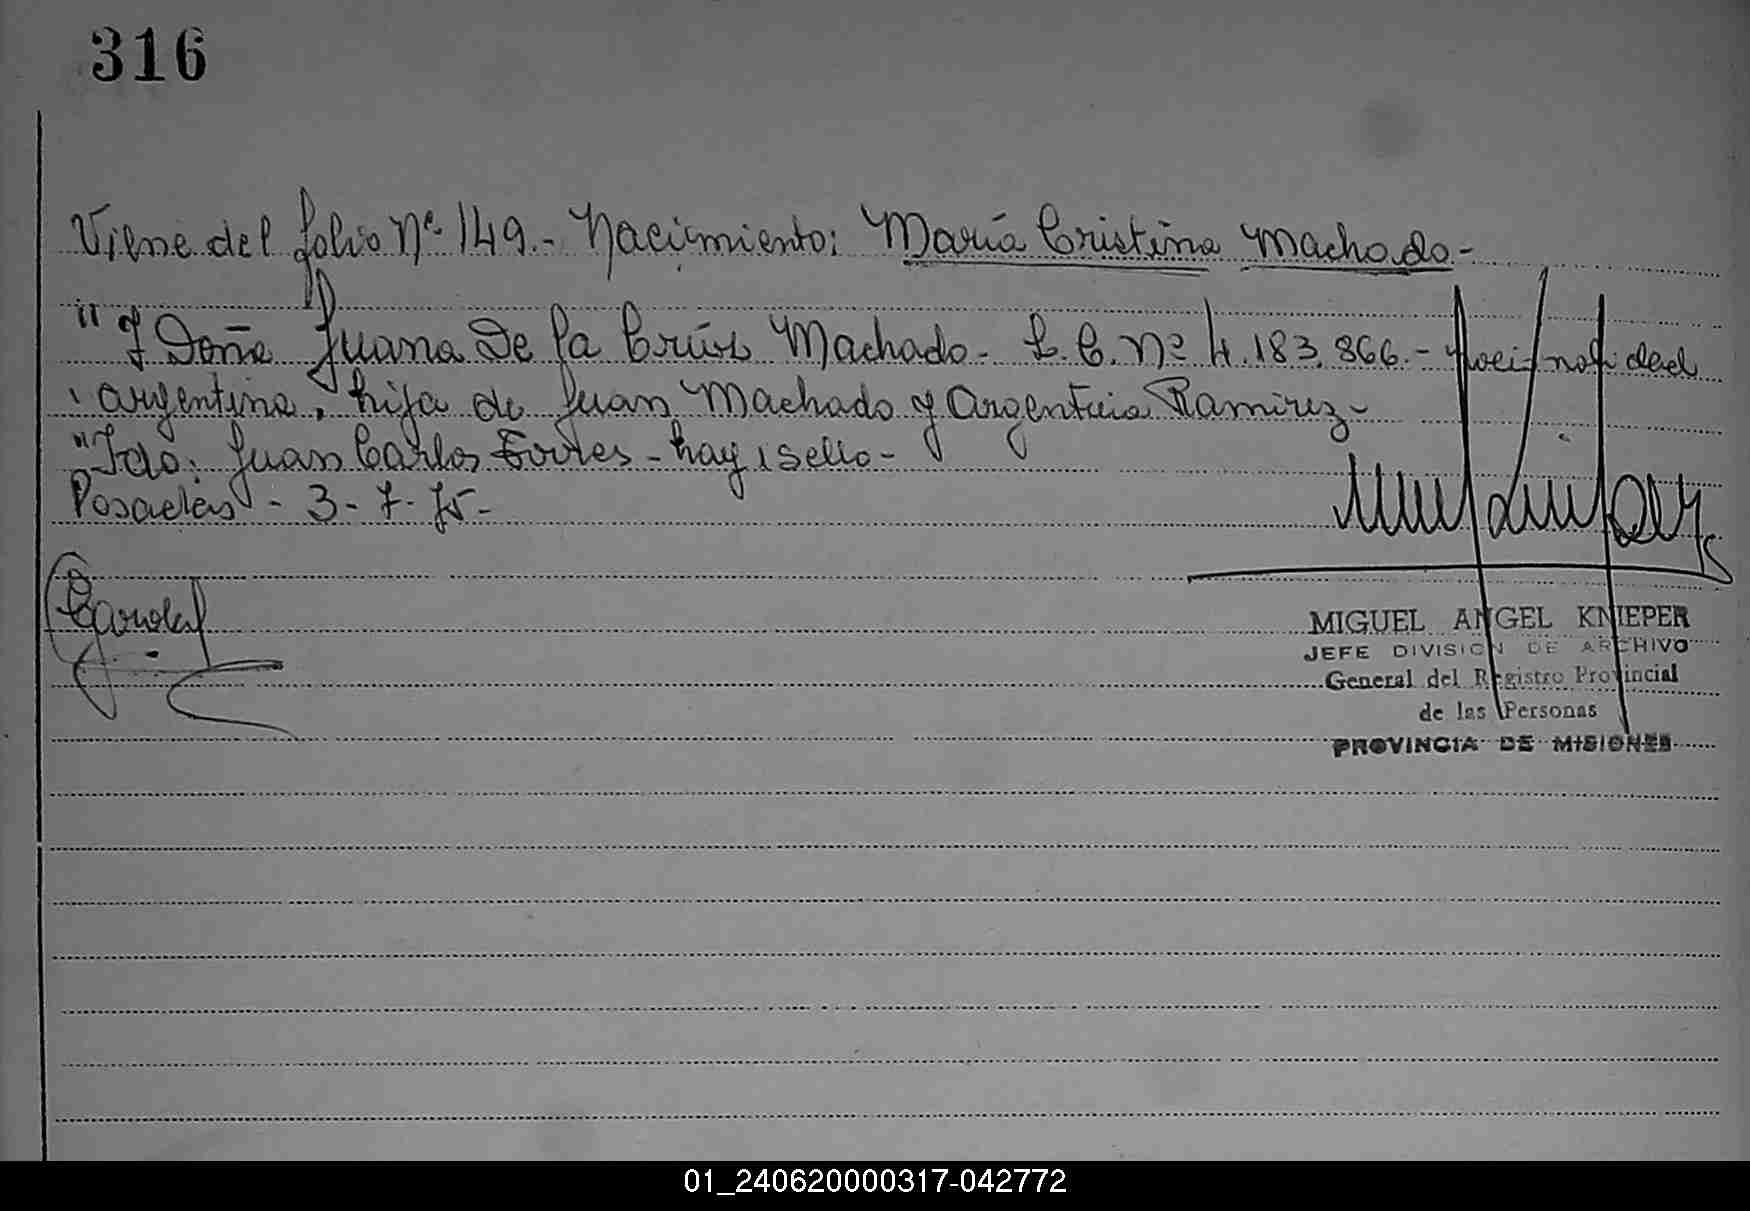 316
Viene del folio Nº 149.- Nacimiento: María Cristina Machado-
"y Doña Juana De la Crúz Machado- L.C. Nº 4.183.866.- nacionalidad
argentina, hija de Juan Machado y Argentina Ramirez-
"Fdo: Juan Carlos Torres - hay 1 sello-
Posadas - 3-7-75-
MIGUEL ANGEL KNIEPER
JEFE DIVISION DE ARCHIVO
General del Registro Provincial
de las Personas
PROVINCIA DE MISIONES
01_240620000317-042772